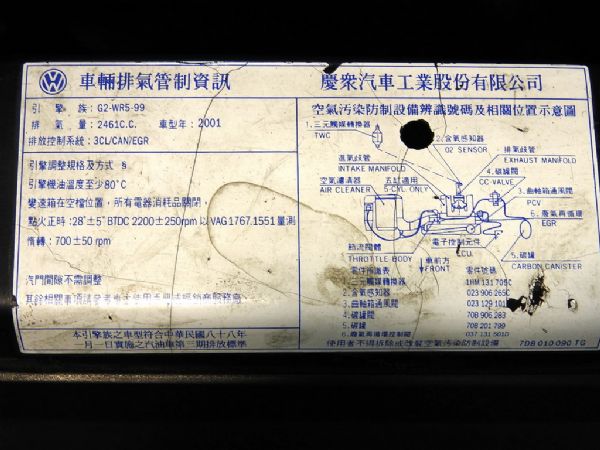 車輛排氣管制資訊
慶衆汽車工業股份有限公司
引 擎 族：G2-WR5-99
排 氣 量：2461C.C. 車型年：2001
排放控制系統：3CL/CAN/EGR
引擎調整規格及方式 §
引擎機油溫度至少80°C
變速箱在空檔位置，所有電器消耗品關閉
點火正時：28°±5° BTDC 2200±250rpm 以 VAG 1767.1551 量測
惰轉：700±50 rpm
汽門間隙不需調整
其餘相關事項請參考車主使用手冊或經銷商服務廠
本引擎族之車型符合中華民國八十八年
一月一日實施之汽油車第三期排放標準
空氣汚染防制設備辨識號碼及相關位置示意圖
1.三元觸媒轉換器
TWC
2.含氧感知器
O2 SENSOR
進氣歧管
INTAKE MANIFOLD
排氣歧管
EXHAUST MANIFOLD
空氣濾清器
AIR CLEANER
五缸適用
5-CYL. ONLY
4.碳罐閥
CC-VALVE
3.曲軸箱通風閥
PCV
6.廢氣再循環
EGR
節流閥體
THROTTLE BODY
電子控制元件
ECU
車前方
FRONT
5.碳罐
CARBON CANISTER
零件辨識表 零件號碼
1.三元觸媒轉換器 1HM 131 705C
2.含氧感知器 023 906 265C
3.曲軸箱通風閥 023 129 101
4.碳罐閥 708 906 283
5.碳罐 708 201 799
6.廢氣再循環控制閥 037 131 501D
使用者不得拆除或改裝空氣汚染防制設備
7DB 010 090 TG